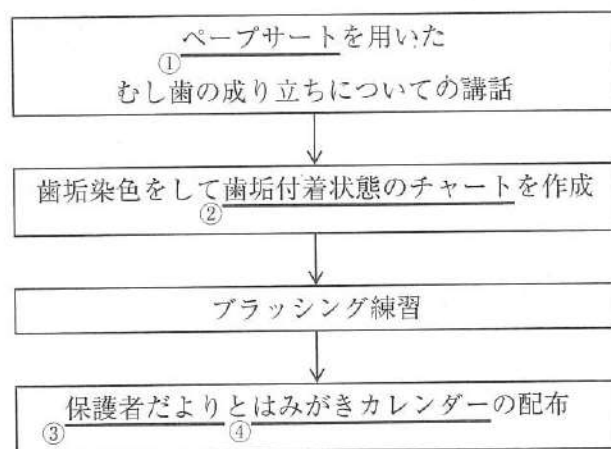 ペープサートを用いた
①
むし歯の成り立ちについての講話
歯垢染色をして歯垢付着状態のチャートを作成
②
ブラッシング練習
保護者だよりとはみがきカレンダーの配布
③ ④